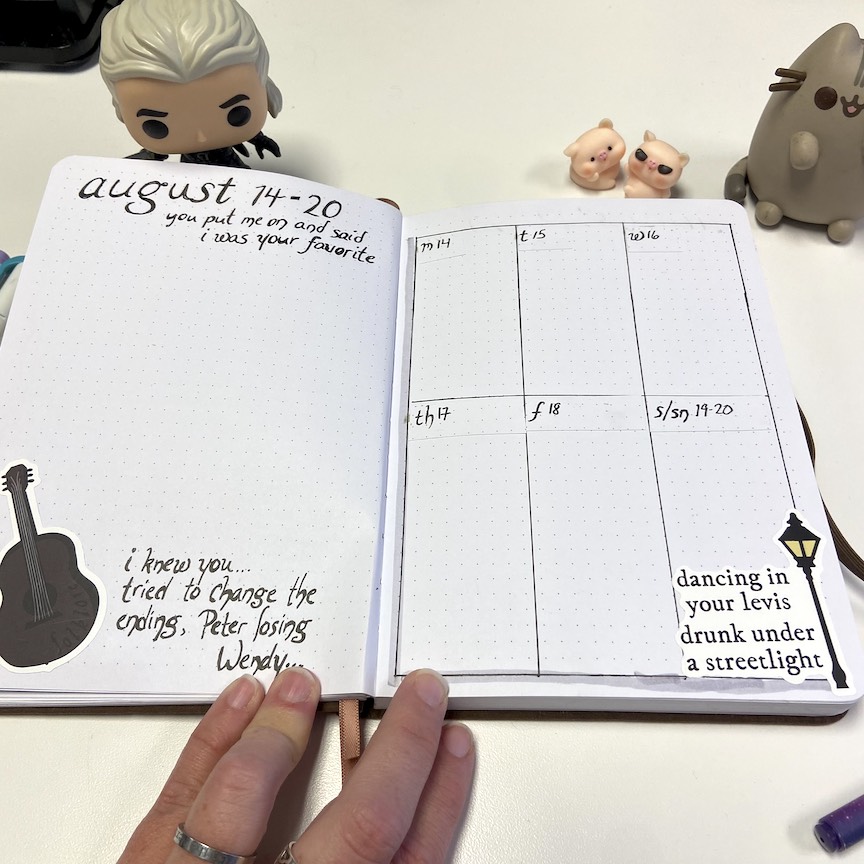 august 14-20
you put me on and said
i was your favorite
i knew you...
tried to change the
ending, Peter losing
Wendy...
m 14
t 15
w 16
th 17
f 18
s/sn 19-20
dancing in
your levis
drunk under
a streetlight